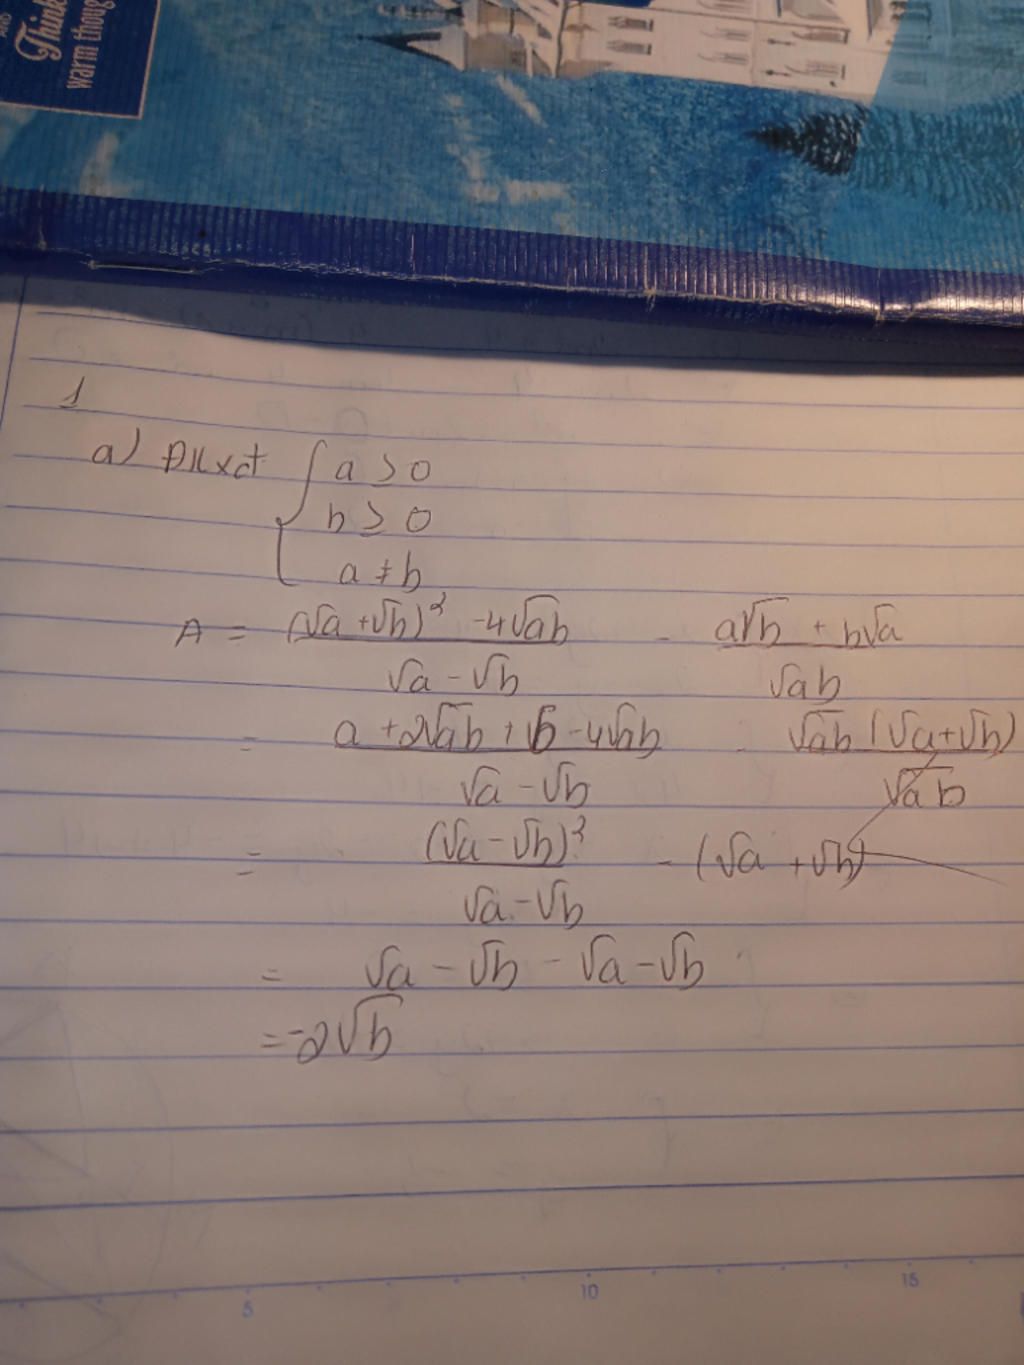 Think
warm thoug
1
a) ĐKxđ { a > 0
b ≥ 0
a ≠ b
A = (√a + √b)² - 4√ab / √a - √b - a√b + b√a / √ab
= a + 2√ab + b - 4√ab / √a - √b - √ab (√a + √b) / √ab
= (√a - √b)² / √a - √b - (√a + √b)
= √a - √b - √a - √b
= -2√b
5 10 15